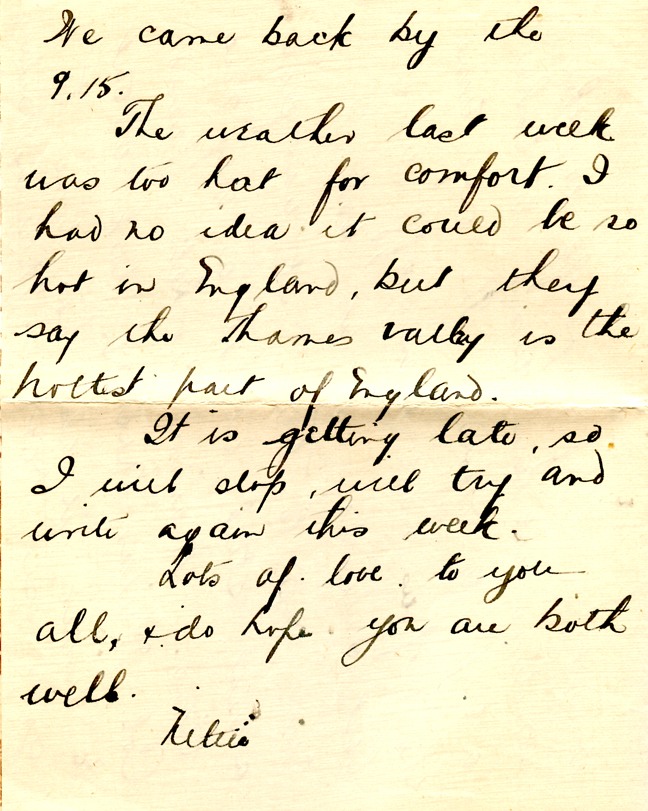 We came back by the
9.15.
The weather last week
was too hot for comfort. I
had no idea it could be so
hot in England, but they
say the Thames valley is the
hottest part of England.
It is getting late, so
I will stop, will try and
write again this week.
Lots of love to you
all, & do hope you are both
well.